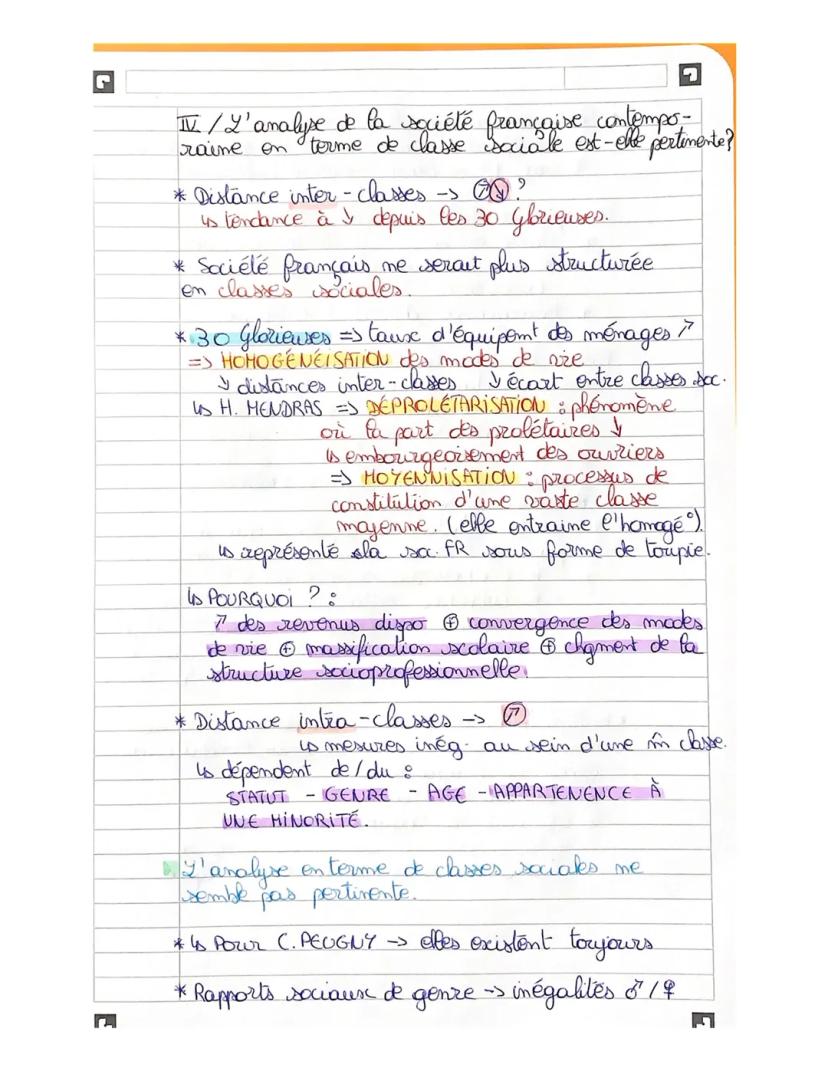 IV / L'analyse de la société française contempo-
raine en terme de classe sociale est-elle pertinente?
* Distance inter-classes -> ↗↘ ?
↳ tendance à ↓ depuis les 30 Glorieuses.
* Société français ne serait plus structurée
en classes sociales.
* 30 Glorieuses => taux d'équipemt des ménages ↗
=> HOMOGÉNÉISATION des modes de vie
↓ distances inter-classes ↓ écart entre classes soc.
↳ H. MENDRAS => DÉPROLÉTARISATION : phénomène
où la part des prolétaires ↓
↳ embourgeoisement des ouvriers
=> MOYENNISATION : processus de
constitution d'une vaste classe
moyenne. (elle entraine l'homogé°).
↳ représenté la soc. FR sous forme de toupie.
↳ POURQUOI ? :
↗ des revenus dispo ⊕ convergence des modes
de vie ⊕ massification scolaire ⊕ chgment de la
structure socioprofessionnelle.
* Distance intra-classes -> ↗
↳ mesures inég. au sein d'une m̂ classe.
↳ dépendent de/du :
STATUT - GENRE - AGE - APPARTENENCE À
UNE MINORITÉ.
L'analyse en terme de classes sociales ne
semble pas pertinente.
* ↳ Pour C. PEUGNY -> elles existent toujours
* Rapports sociaux de genre -> inégalités ♂/♀